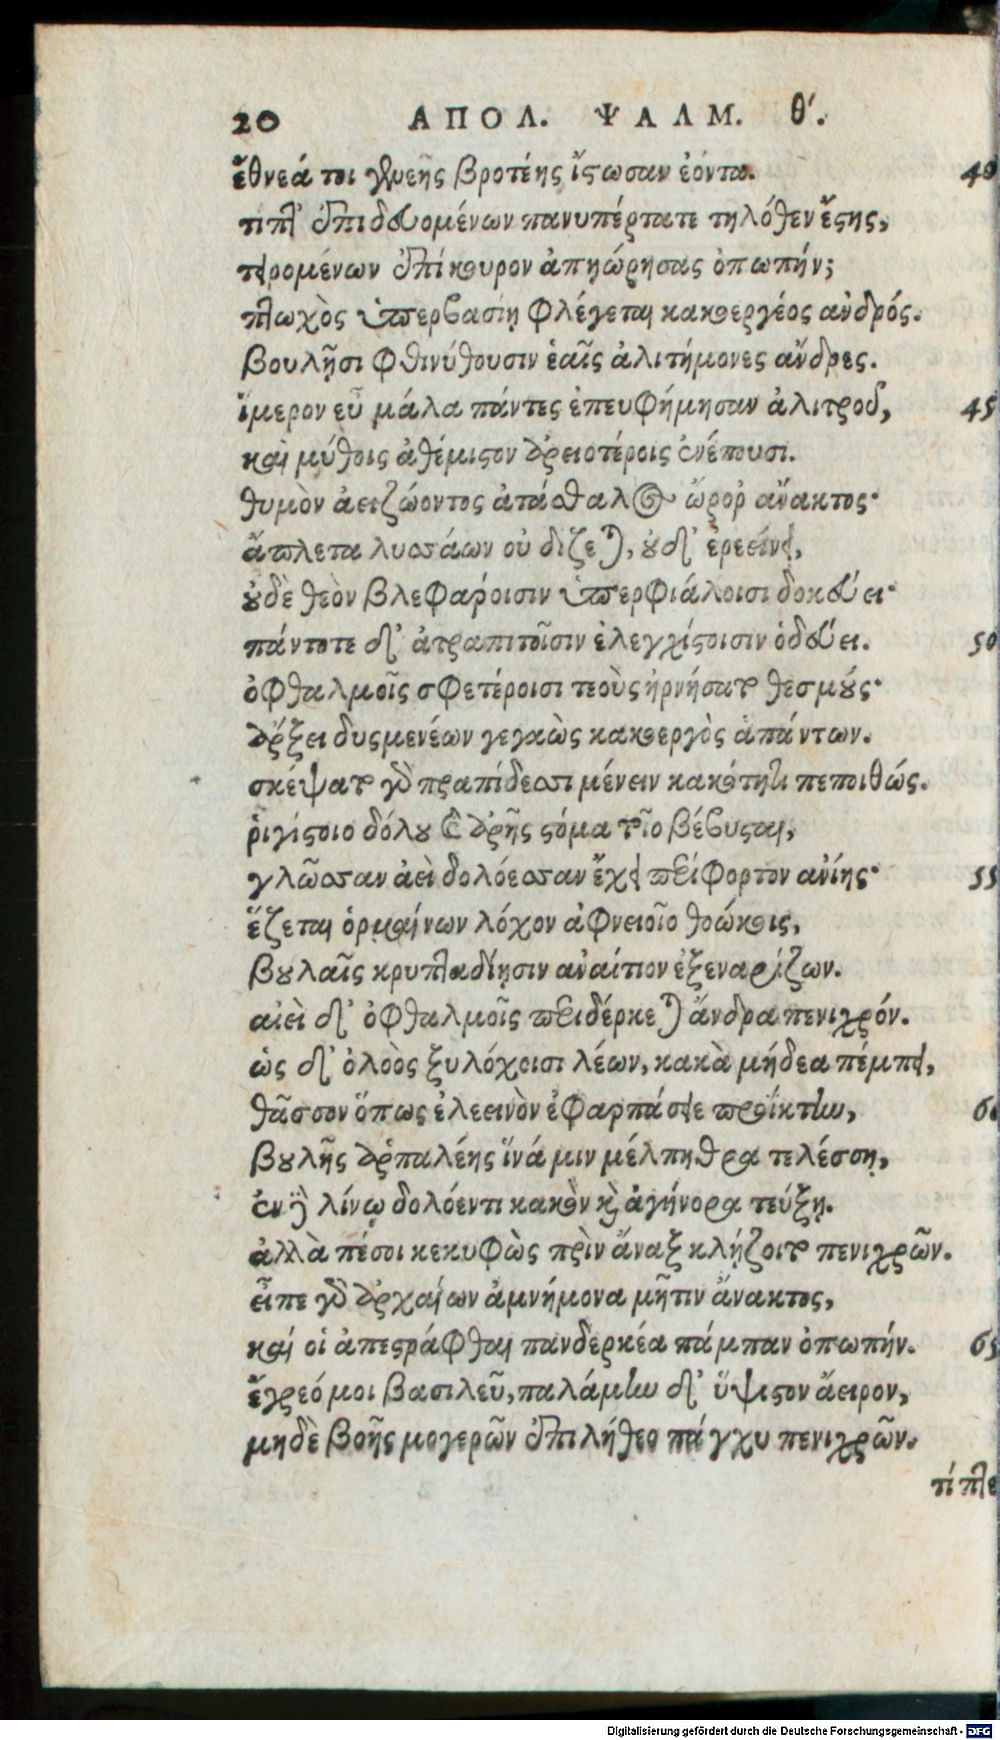 20 ΑΠΟΛ. ΨΑΛΜ. θ'.
ἔθνεά τοι γενεῆς βροτέης ἴστωσαν ἐόντα. 40
τίπτ' ἐπιδευομένων πανυπέρτατε τηλόθεν ἔστης,
τειρομένων ἐπίκουρον ἀπηώρησας ὀπωπήν;
πτωχὸς ὑπερβασίῃ φλέγεται κακοεργέος ἀνδρός.
βουλῇσι φθινύθουσιν ἑαῖς ἀλιτήμονες ἄνδρες.
ἵμερον εὖ μάλα πάντες ἐπευφήμησαν ἀλιτροῦ, 45
καὶ μύθοις ἀθέμιστον ἀρειοτέροις ἐνέπουσι.
θυμὸν ἀειζώοντος ἀτάσθαλος ὤρορεν ἄνακτος·
ἄπλετα λυσσάων οὐ δίζεται, οὐδ' ἐρεείνει,
οὐδὲ θεὸν βλεφάροισιν ὑπερφιάλοισι δοκεύει·
πάντοτε δ' ἀτραπιτοῖσιν ἐλεγχίστοισιν ὁδεύει. 50
ὀφθαλμοῖς σφετέροισι τεοὺς ἠρνήσατο θεσμούς·
ἄρξει δυσμενέων γεγαὼς κακοεργὸς ἁπάντων.
σκέψατο γὰρ πραπίδεσσι μένειν κακότητι πεποιθώς.
ῥιγίστοιο δόλου καὶ ἀρῆς στόμα τοῖο βέβυσται,
γλῶσσαν ἀεὶ δολόεσσαν ἔχει περίφορτον ἀνίης· 55
ἕζεται ὁρμαίνων λόχον ἀφνειοῖο θοώκοις,
βουλαῖς κρυπταδίῃσιν ἀναίτιον ἐξεναρίζων.
αἰεὶ δ' ὀφθαλμοῖς περιδέρκεται ἄνδρα πενιχρόν.
ὡς δ' ὀλοὸς ξυλόχοισι λέων, κακὰ μήδεα πέμπει,
θᾶσσον ὅπως ἐλεεινὸν ἐφαρπάσειε προΐκτην, 60
βουλῆς ἁρπαλέης ἵνά μιν μέλπηθρα τελέσσῃ,
ἐν λίνῳ δολόεντι κακὸν καὶ ἀγήνορα τεύξῃ.
ἀλλὰ πέσοι κεκυφὼς πρὶν ἄναξ κλῄζοιτο πενιχρῶν.
εἶπε γὰρ ἀρχαίων ἀμνήμονα μῆτιν ἄνακτος,
καί οἱ ἀπεστράφθαι πανδερκέα πάμπαν ὀπωπήν. 65
ἔγρεό μοι βασιλεῦ, παλάμην δ' ὕψιστον ἄειρον,
μηδὲ βοῆς μογερῶν ἐπιλήθεο πάγχυ πενιχρῶν.
τίπτε
Digitalisierung gefördert durch die Deutsche Forschungsgemeinschaft - DFG